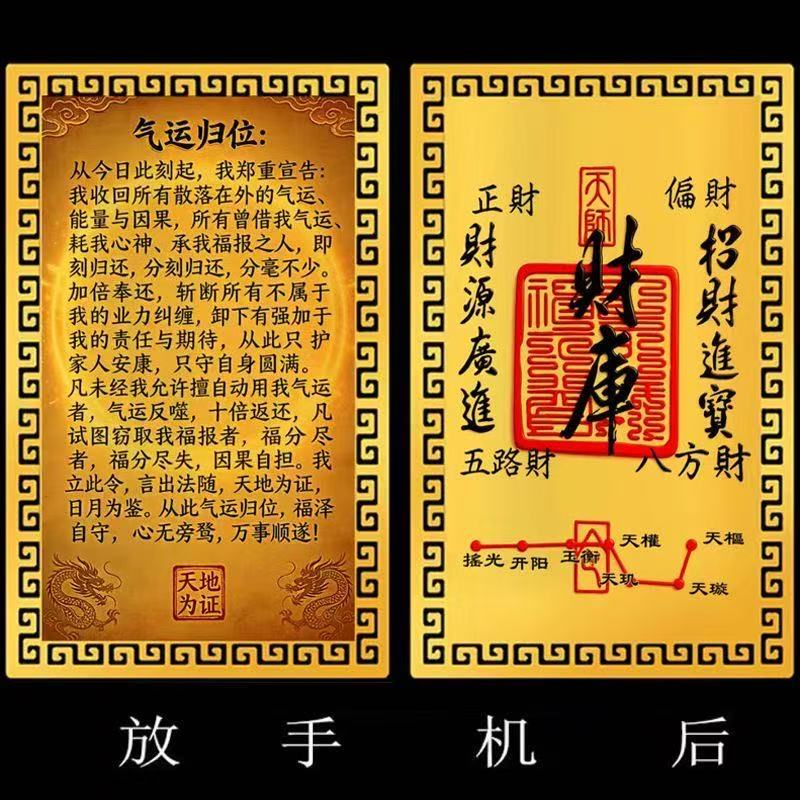 气运归位:
从今日此刻起，我郑重宣告:
我收回所有散落在外的气运、
能量与因果，所有曾借我气运、
耗我心神、承我福报之人，即
刻归还，分刻归还，分毫不少。
加倍奉还，斩断所有不属于
我的业力纠缠，卸下有强加于
我的责任与期待，从此只 护
家人安康，只守自身圆满。
凡未经我允许擅自动用我气运
者，气运反噬，十倍返还，凡
试图窃取我福报者，福分 尽
者，福分尽失，因果自担。我
立此令，言出法随，天地为证，
日月为鉴。从此气运归位，福泽
自守，心无旁骛，万事顺遂！
天地
为证
天師
正財
偏財
財源廣進
財庫
招財進寶
五路財
八方財
摇光
开阳
玉衡
天權
天玑
天樞
天璇
放手机后